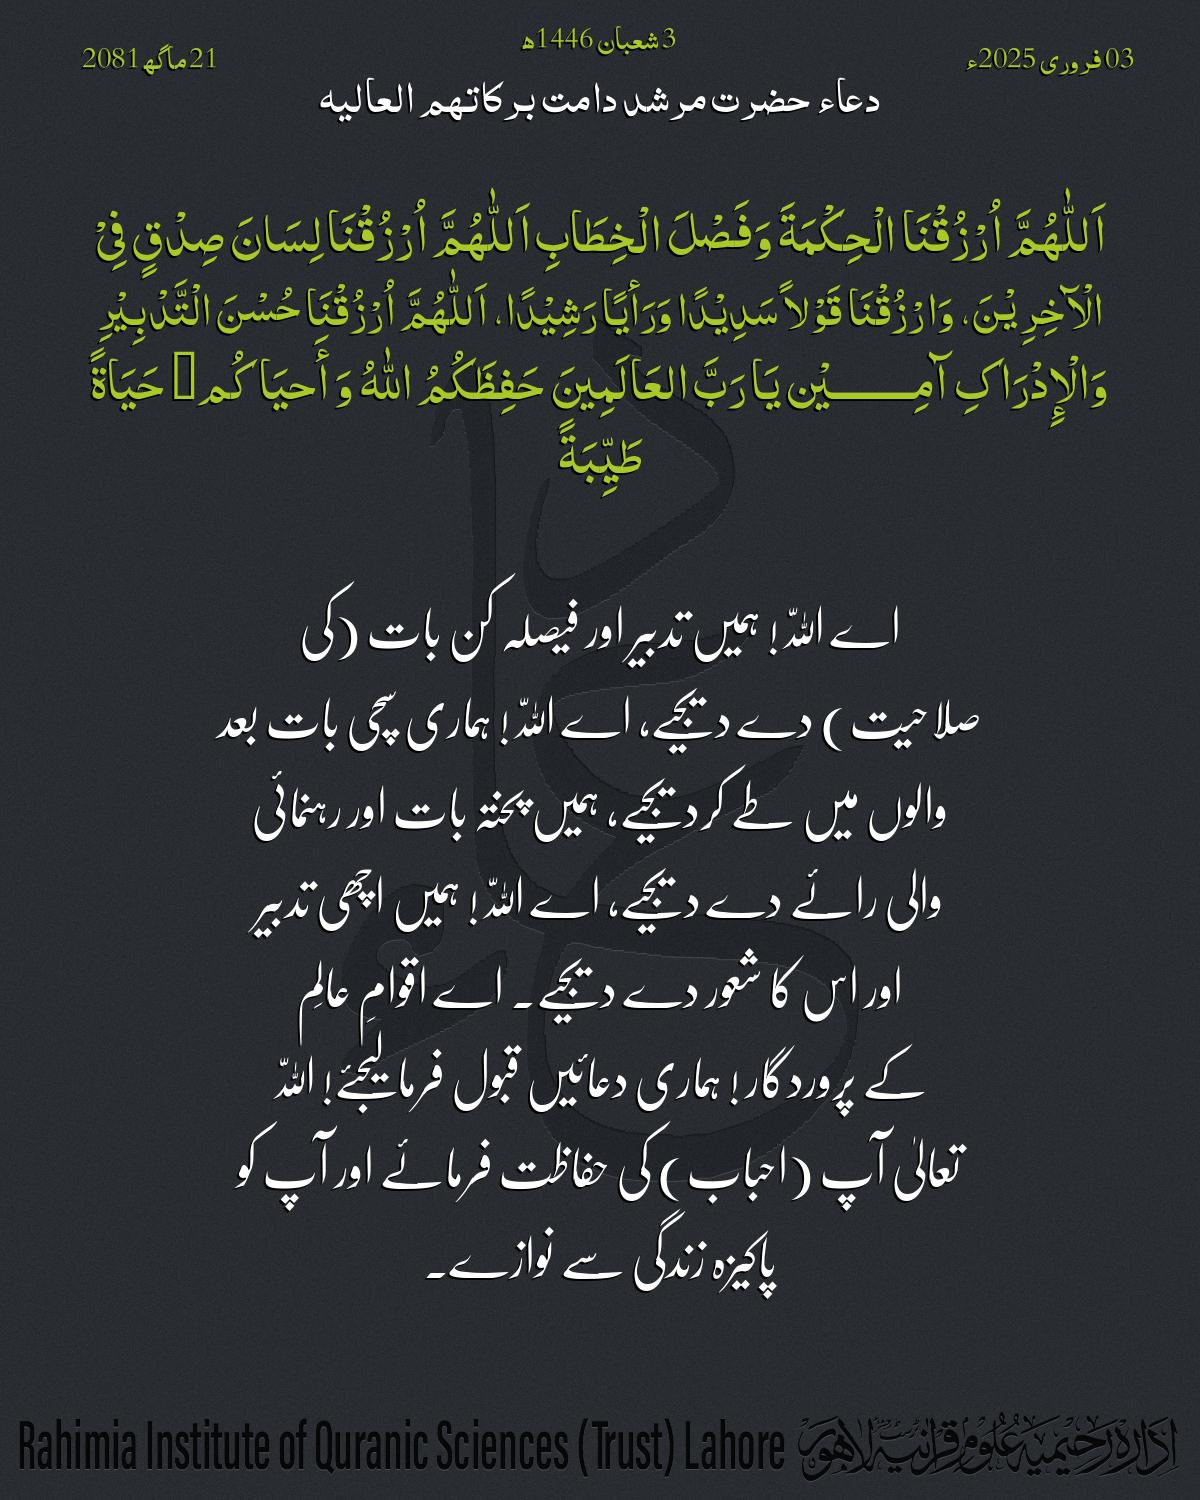 03 فروری 2025ء
3 شعبان 1446ھ
21 ماگھ 2081
دعاء حضرت مرشد دامت برکاتہم العالیہ
اَللّٰهُمَّ اُرْزُقْنَا الْحِكْمَةَ وَفَصْلَ الْخِطَابِ اَللّٰهُمَّ اُرْزُقْنَا لِسَانَ صِدْقٍ فِیْ
الْآخِرِيْنَ، وَارْزُقْنَا قَوْلاً سَدِيْدًا وَرَأيًا رَشِيْدًا، اَللّٰهُمَّ اُرْزُقْنَا حُسْنَ التَّدْبِيْرِ
وَالْإِدْرَاکِ آمِـــــيْن يَا رَبَّ العَالَمِينَ حَفِظَكُمُ اللّٰهُ وَ أَحيَا كُم حَيَاةً
طَيِّبَةً
اے اللہ! ہمیں تدبیر اور فیصلہ کن بات (کی
صلاحیت) دے دیجیے، اے اللہ! ہماری سچی بات بعد
والوں میں طے کردیجیے، ہمیں پختہ بات اور رہنمائی
والی رائے دے دیجیے، اے اللہ! ہمیں اچھی تدبیر
اور اس کا شعور دے دیجیے۔ اے اقوامِ عالِم
کے پروردگار! ہماری دعائیں قبول فرمالیجئے! اللہ
تعالیٰ آپ (احباب) کی حفاظت فرمائے اور آپ کو
پاکیزہ زندگی سے نوازے۔
Rahimia Institute of Quranic Sciences (Trust) Lahore اِدَارَہ رَحِیْمِیَہ عُلُوْمِ قُرْآنِیَہ لَاہَور